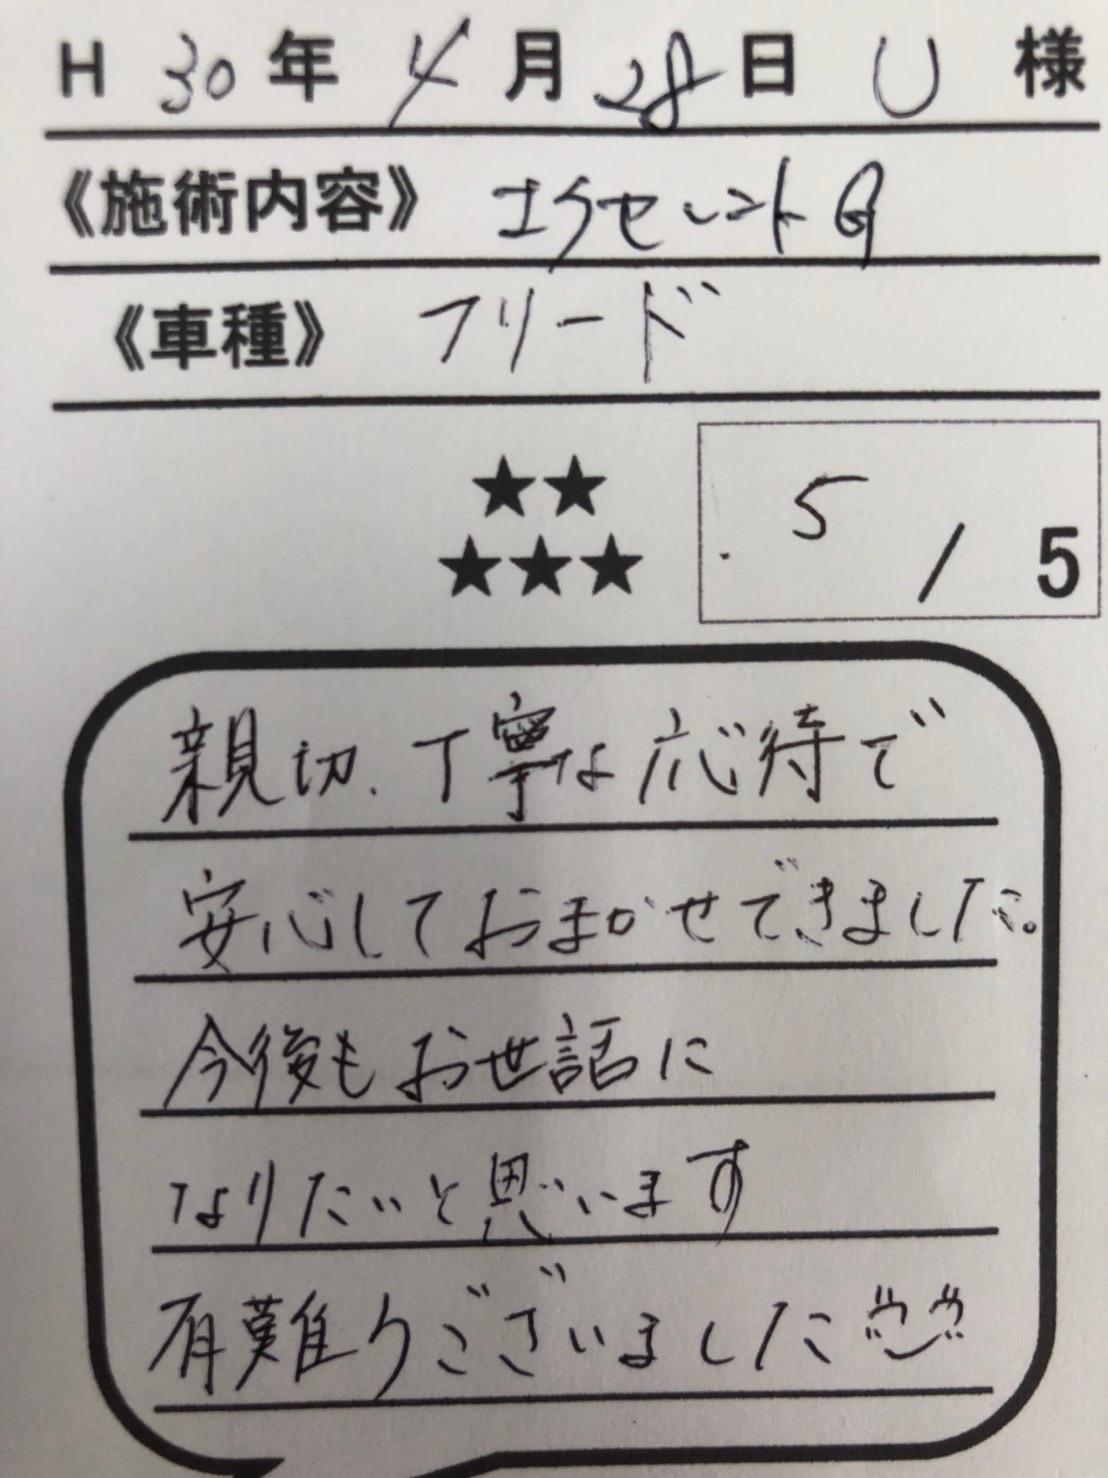 H 30 年 4 月 28 日 U 様
《施術内容》 エクセレントG
《車種》 フリード
★★
★★★
5 / 5
親切、丁寧な応待で
安心しておまかせできました。
今後もお世話に
なりたいと思います
有難うございました